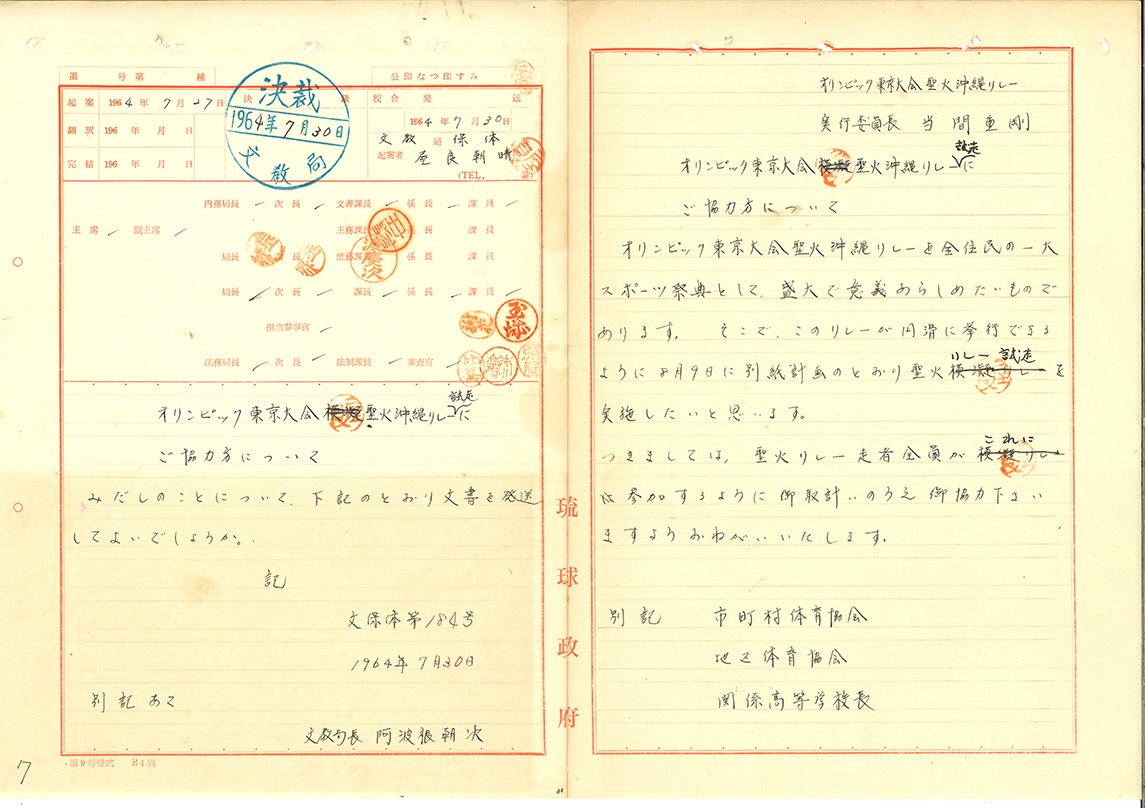 第 号第 種
公印なつ印すみ
起案 1964年7月27日
決裁
1964年7月30日
文教局
校合 発送
1964年7月30日
翻訳 196 年 月 日
文教局 保体
起案者 屋良朝晴
完結 196 年 月 日
(TEL. 番)
内務局長 次長 文書課長 係長 課員
主席 副主席 主務課長 係長 課員
局長 次長 庶務課長 係長 課員
局長 次長 課長 係長 課員
担当参事官
法務局長 次長 法制課長 審査官
試走
オリンピック東京大会模擬聖火沖縄リレーに
ご協力方について
みだしのことについて、下記のとおり文書を発送
してよいでしょうか。
記
文保体第184号
1964年7月30日
別記あて
文教局長 阿波根朝次
第9号様式 B4判
7
琉球政府
オリンピック東京大会聖火沖縄リレー
実行委員長 当間重剛
試走
オリンピック東京大会模擬聖火沖縄リレーに
ご協力方について
オリンピック東京大会聖火沖縄リレーを全住民の一大
スポーツ祭典として、盛大で意義あらしめたいもので
あります。 そこで、このリレーが円滑に挙行できる
リレー試走
ように8月9日に別紙計画のとおり聖火模擬リレーを
実施したいと思います。
これに
つきましては、聖火リレー走者全員が模擬リレー
に参加するように御取計いのうえ御協力下さい
ますようおねがいいたします。
別記 市町村体育協会
地区体育協会
関係高等学校長